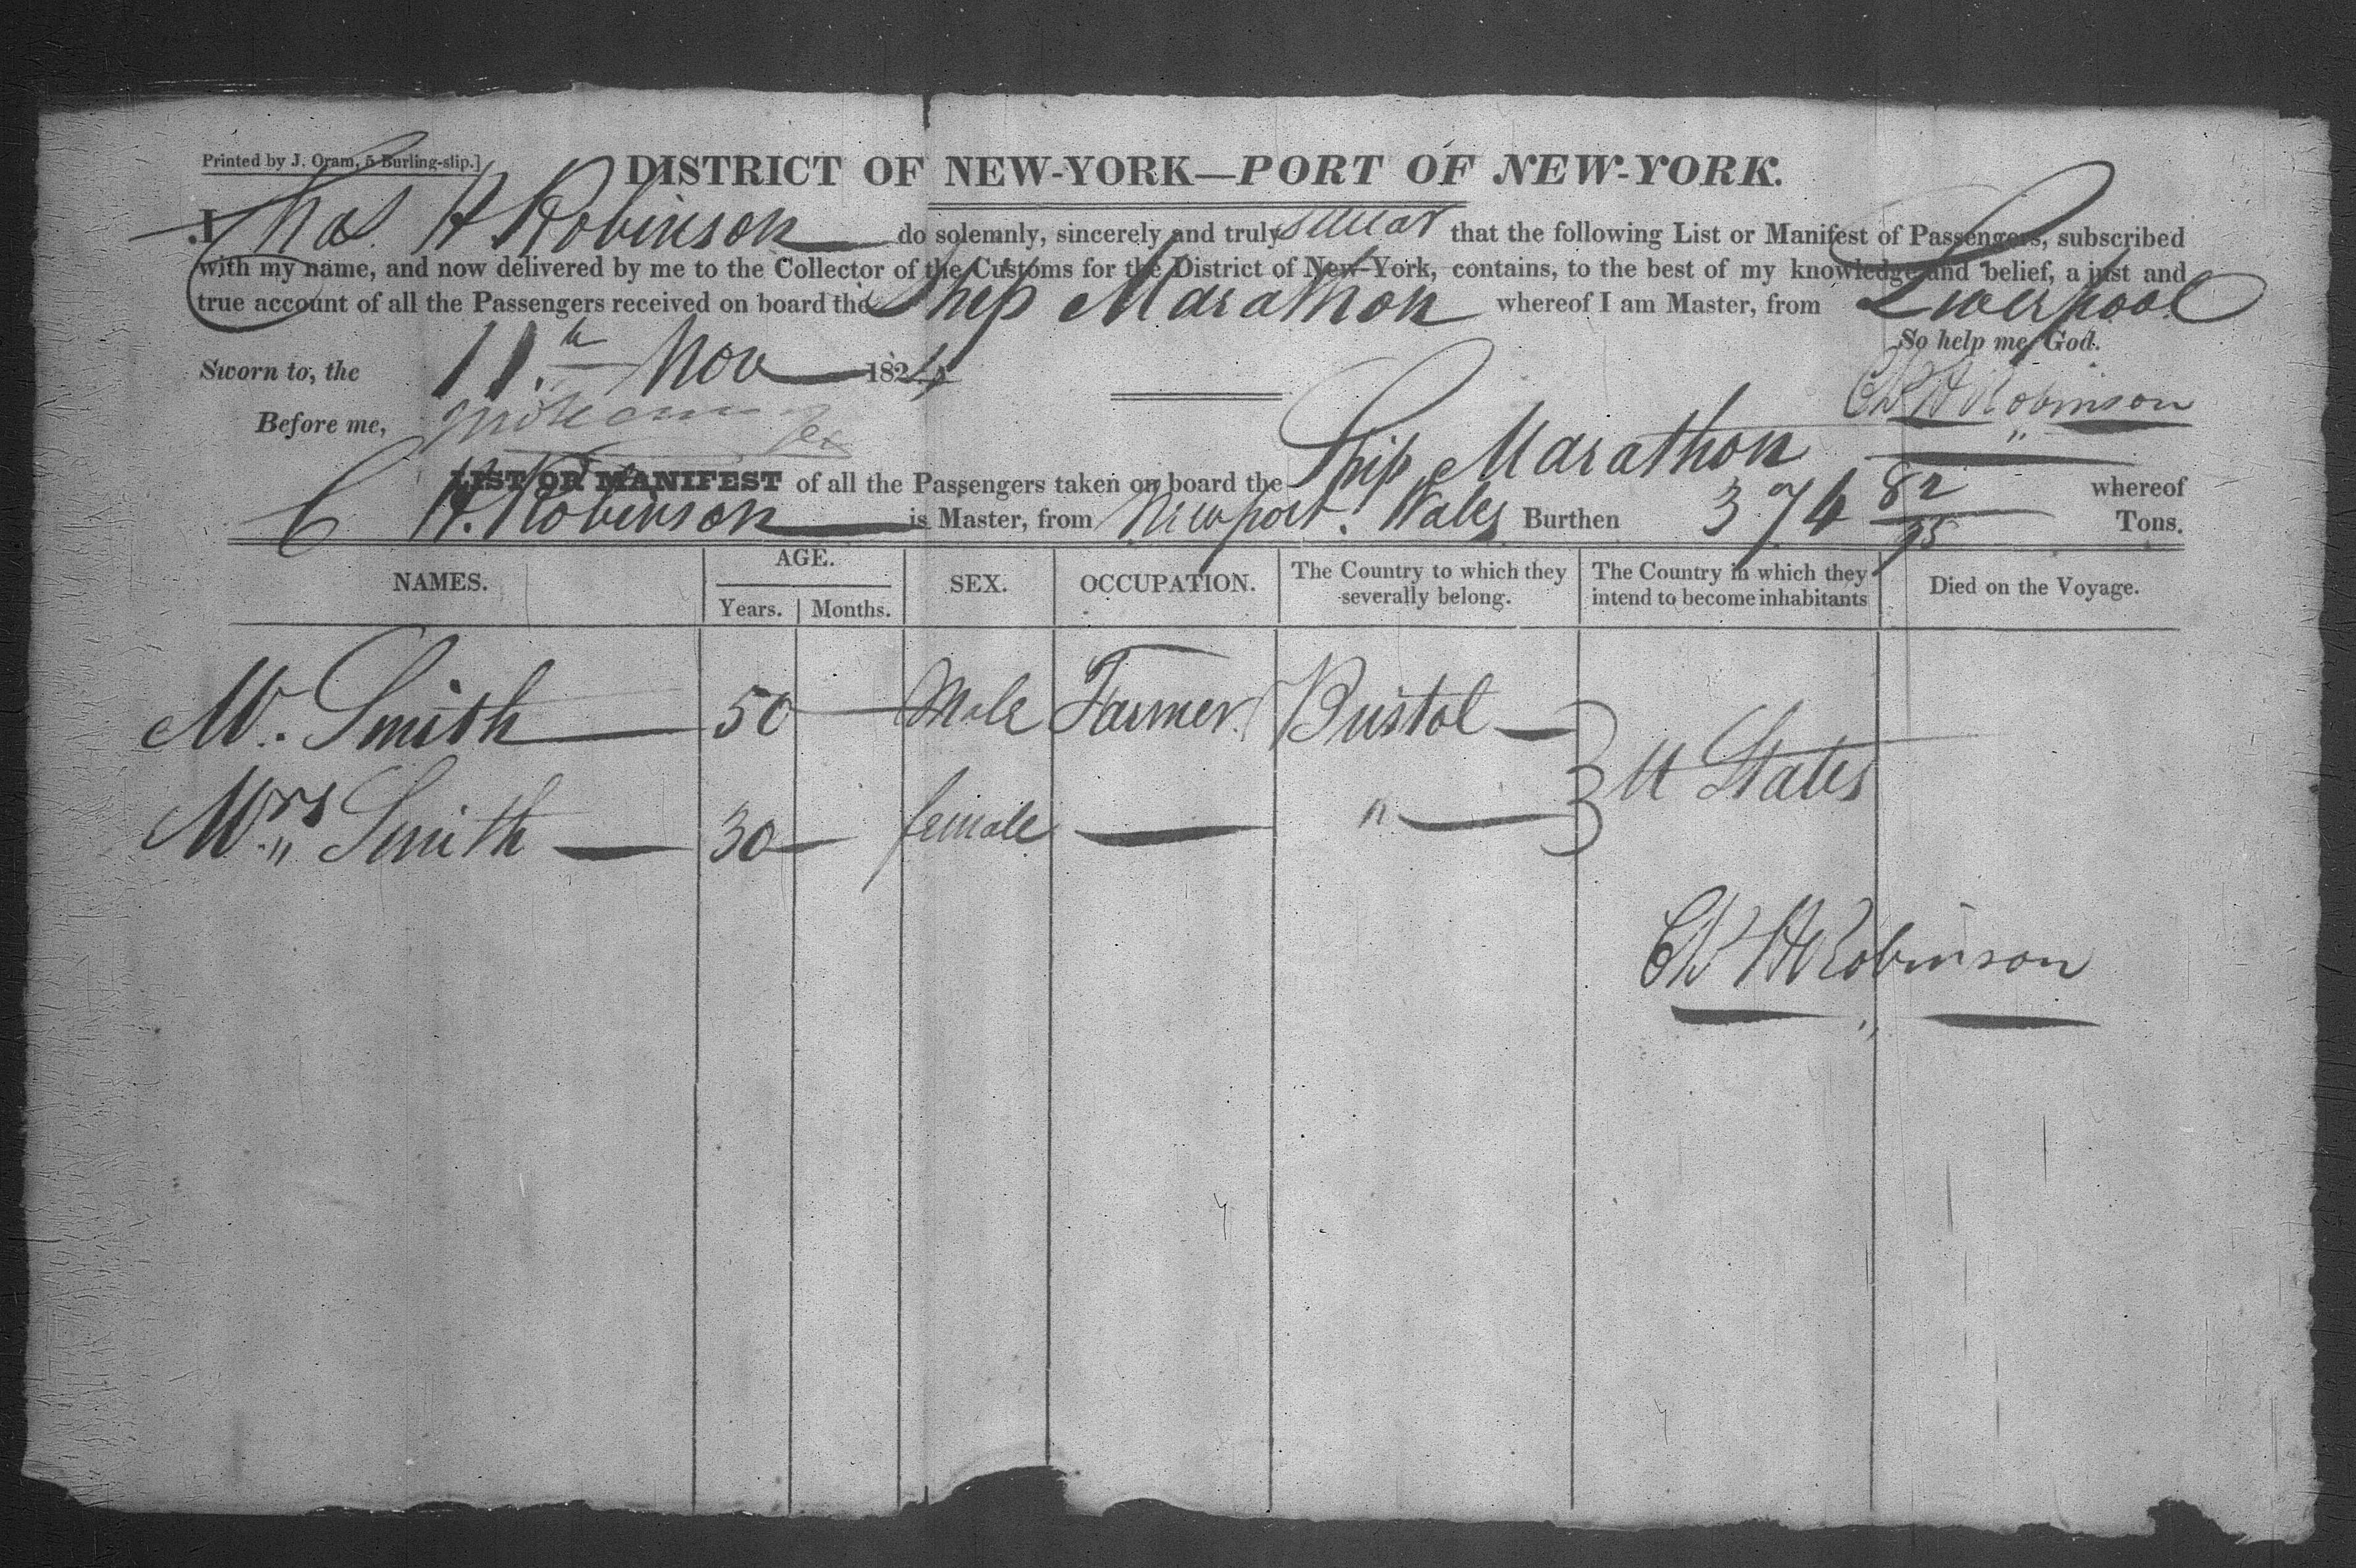 Printed by J. Oram, 5 Burling-slip.]
DISTRICT OF NEW-YORK—PORT OF NEW-YORK.
I Chas. H Robinson do solemnly, sincerely and truly swear that the following List or Manifest of Passengers, subscribed
with my name, and now delivered by me to the Collector of the Customs for the District of New-York, contains, to the best of my knowledge and belief, a just and
true account of all the Passengers received on board the Ship Marathon whereof I am Master, from Liverpool
So help me God.
Sworn to, the 11th Nov 1824
Chs H Robinson
Before me,
LIST OR MANIFEST of all the Passengers taken on board the Ship Marathon whereof
C H. Robinson is Master, from Newport. Wales Burthen 374 82/95 Tons.
NAMES. AGE. SEX. OCCUPATION. The Country to which they severally belong. The Country in which they intend to become inhabitants Died on the Voyage.
Years. Months.
Mr. Smith 50 Male Farmer. Bristol
U States
Mrs Smith 30 female — "
Chs H Robinson